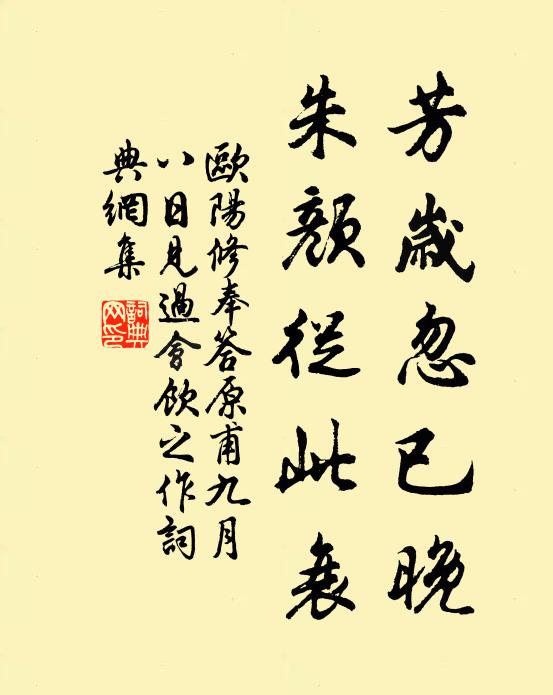 芳歲忽已晚
朱顏從此衰
歐陽修奉答原甫九月
八日見過會飲之作詞
典網集
詞典網印